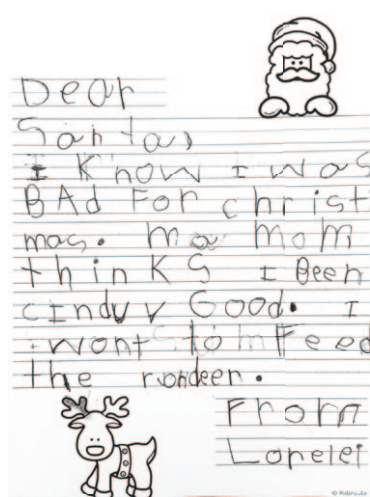 Dear
Santa,
I Know I was
BAd For christ
mas. ma mom
thinKS I Been
cinduv Good. I
wont to Feed
the rondeer.
From
Lorelei